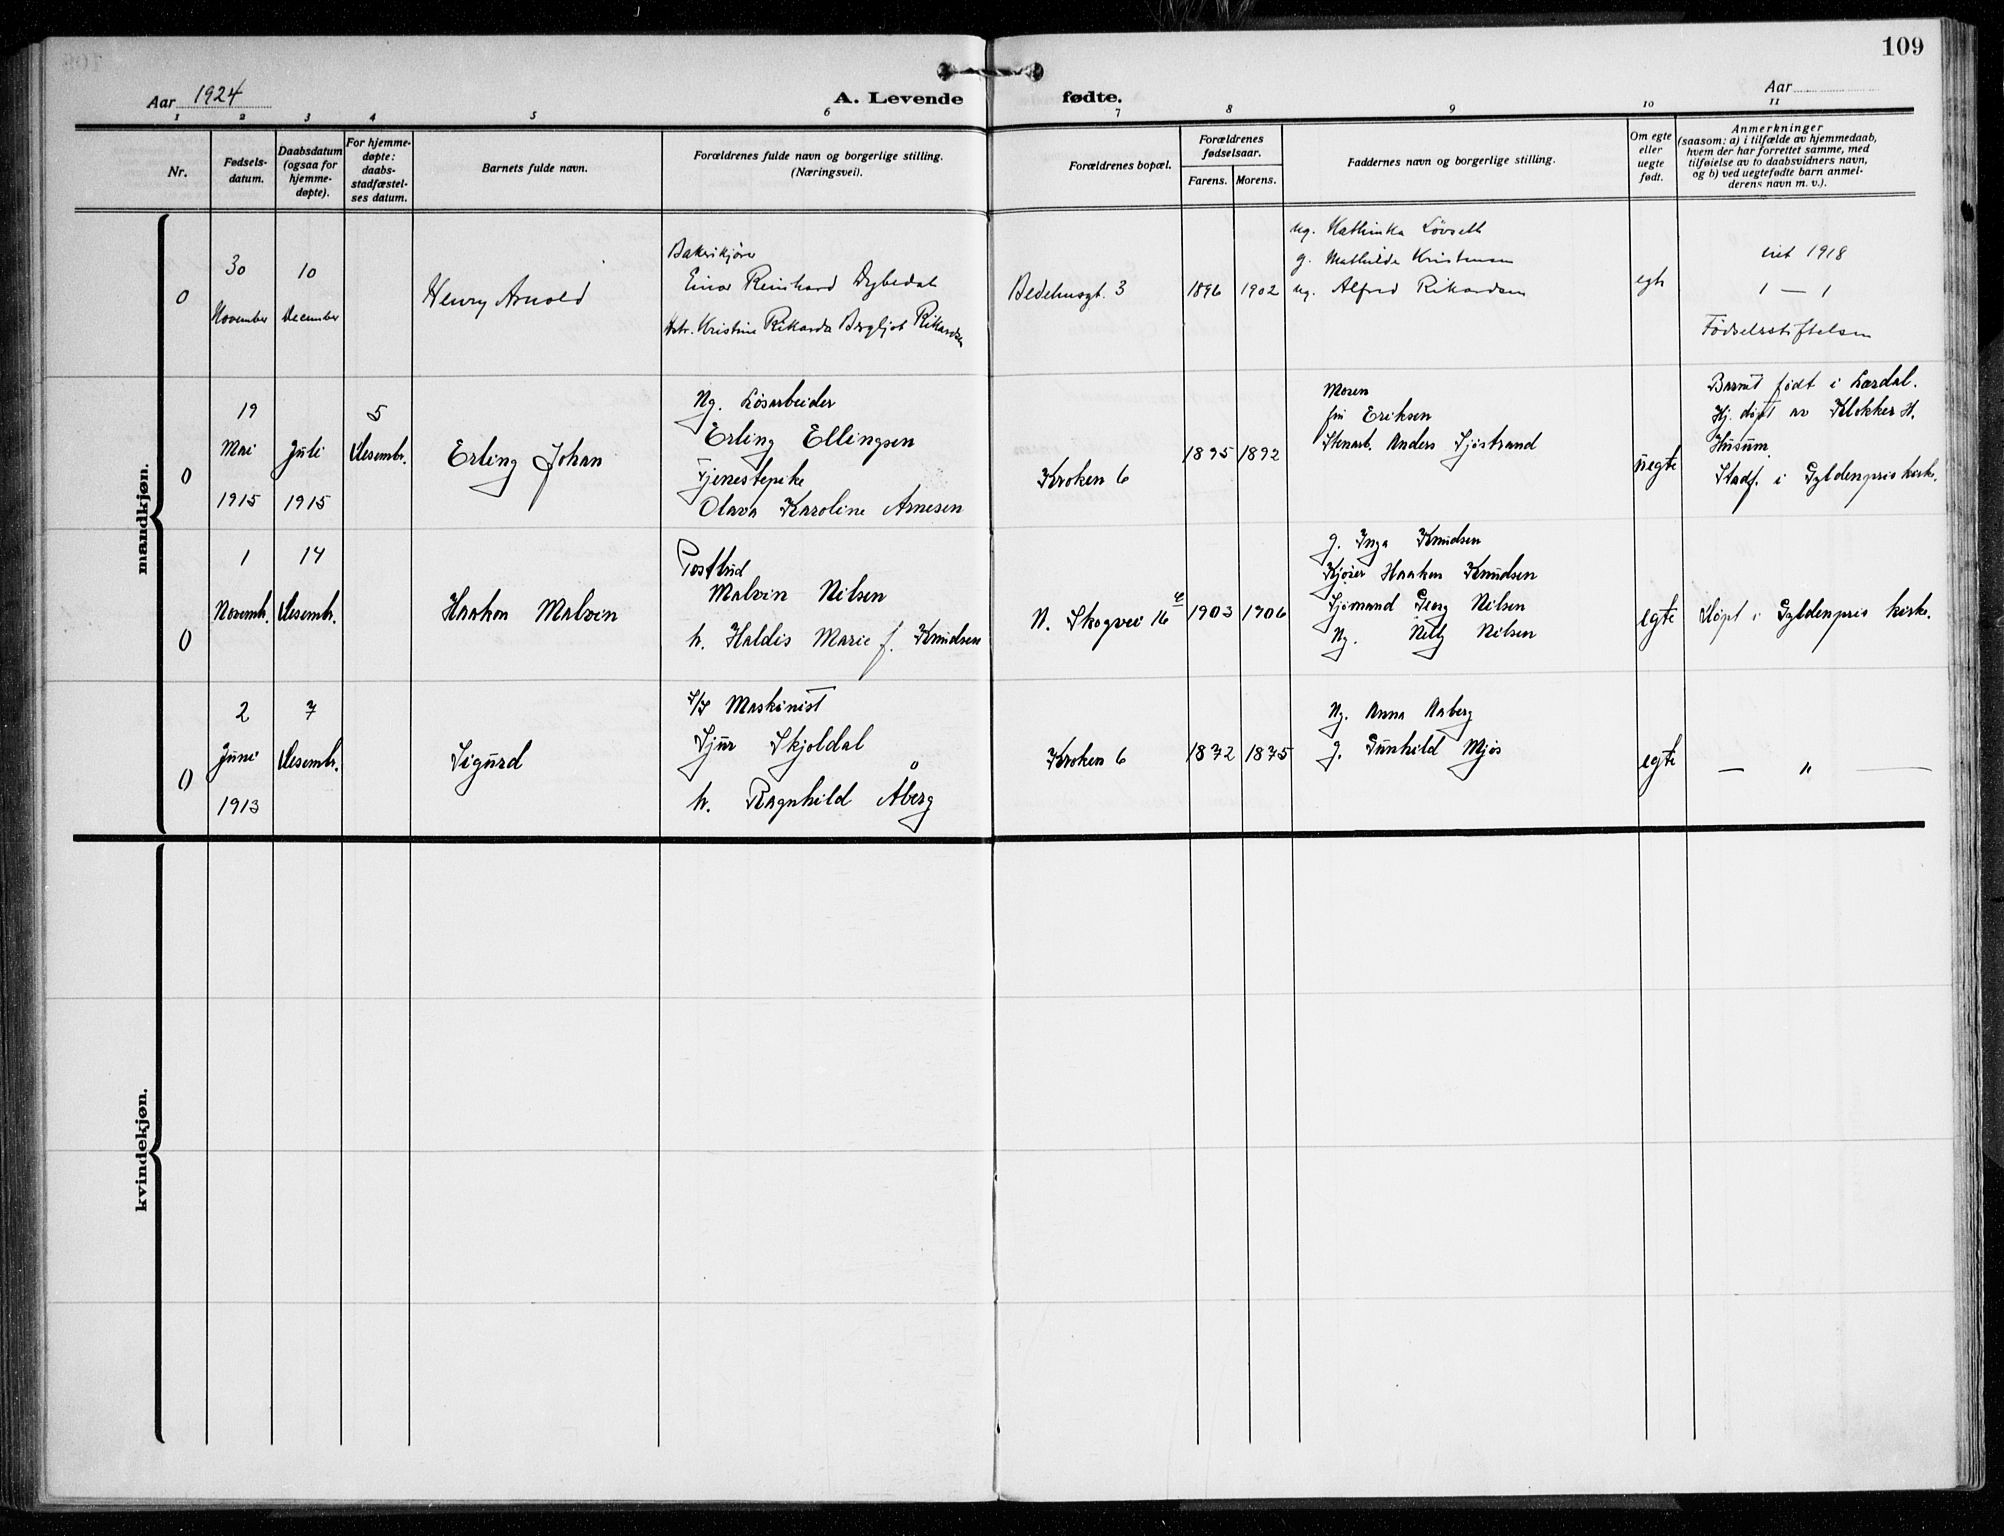 109
Aar 1924
A. Levende fødte.
Aar
1 2 3 4 5 6 7 8 9 10 11
Nr.
Fødsels-
datum.
Daabsdatum
(ogsaa for
hjemme-
døpte).
For hjemme-
døpte:
daabs-
stadfæstel-
ses datum.
Barnets fulde navn.
Forældrenes fulde navn og borgerlige stilling.
(Næringsvei).
Forældrenes bopæl.
Forældrenes
fødselsaar.
Farens. Morens.
Faddernes navn og borgerlige stilling.
Om egte
eller
uegte
født.
Anmerkninger
(saasom: a) i tilfælde av hjemmedaab,
hvem der har forrettet samme, med
tilføielse av to daabsvidners navn,
og b) ved uegtefødte barn anmel-
derens navn m. v.).
mandkjøn.
0
30
November
10
December
Henry Arnold
Bakerikjører
Einar Reinhard Dybedal
Hstr. Kristine Rikarda Bergljot Rikardsen
Bedehusgt. 3
1896
1902
ug. Kathinka Løvseth
g. Mathilde Kristensen
ug. Alfred Rikardsen
egte
viet 1918
1 — 1
Fødselsstiftelsen
0
19
Mai
1915
Juli
1915
5
Desembr.
Erling Johan
Ug. Løsarbeider
Erling Ellingsen
Tjenestepike
Olava Karoline Arnesen
Kroken 6
1895
1892
Moren
fru Eriksen
Stenarb. Anders Sjøstrand
uegte
Barnet født i Lærdal.
Hj. døpt av Klokker H.
Husum.
Stadf. i Gyldenpris kirke.
0
1
Novembr.
14
Desembr.
Haakon Malvin
Postbud
Malvin Nilsen
h. Haldis Marie f. Knudsen
N. Skogvei 16 e
1903
1906
g. Inga Knudsen
Kjører Haakon Knudsen
Sjømand Georg Nilsen
Ug. Nelly Nilsen
egte
Døpt i Gyldenpris kirke.
0
2
Juni
1913
7
Desembr.
Sigurd
S/S Maskinist
Sjur Skjoldal
h. Ragnhild Åberg
Kroken 6
1872
1875
Ug. Anna Aaberg
g. Gunhild Mjøs
egte
— " —
kvindekjøn.